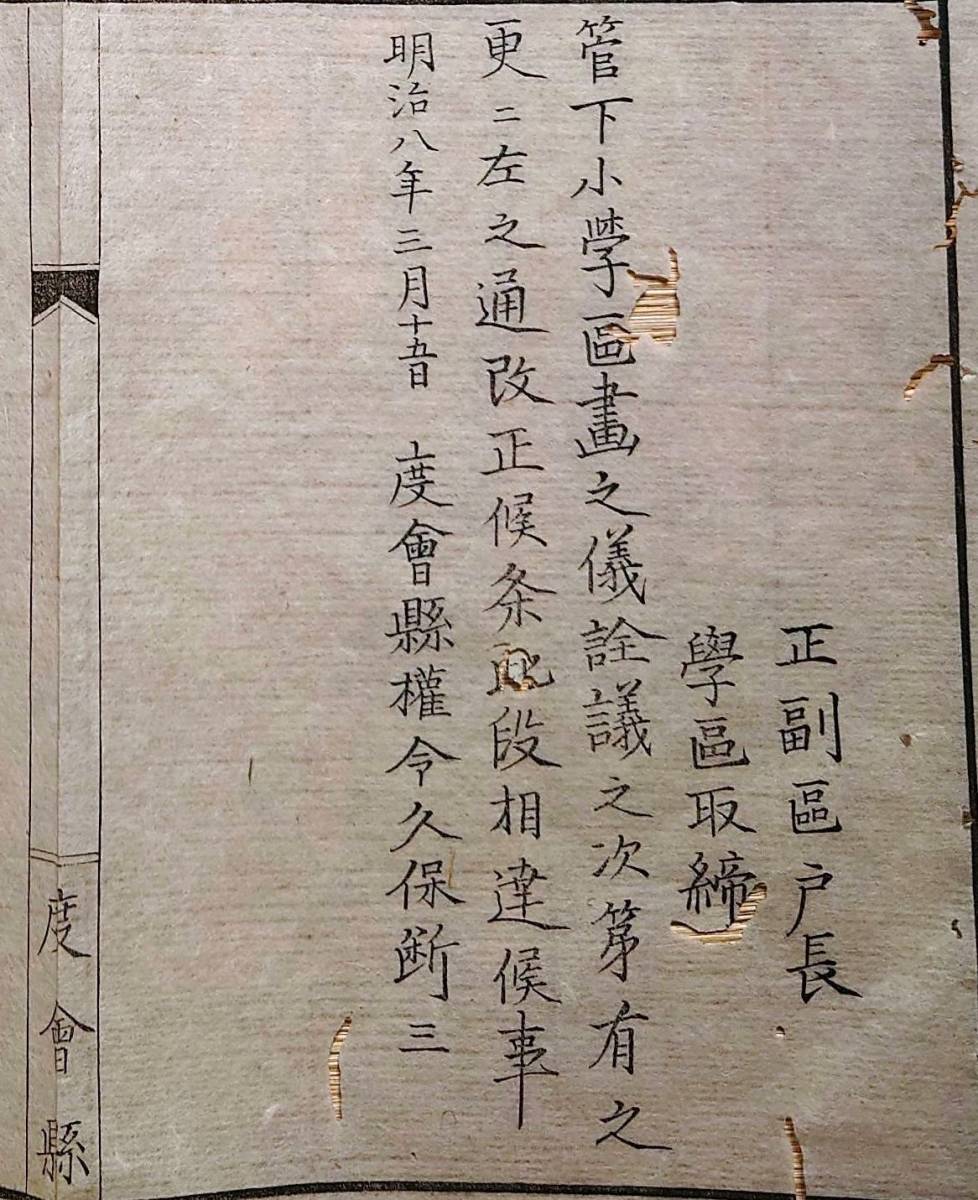 正副區戸長
學區取締
管下小學區畫之儀詮議之次第有之
更ニ左之通改正候条此段相達候事
明治八年三月十五日 度會縣權令久保断三
度會縣